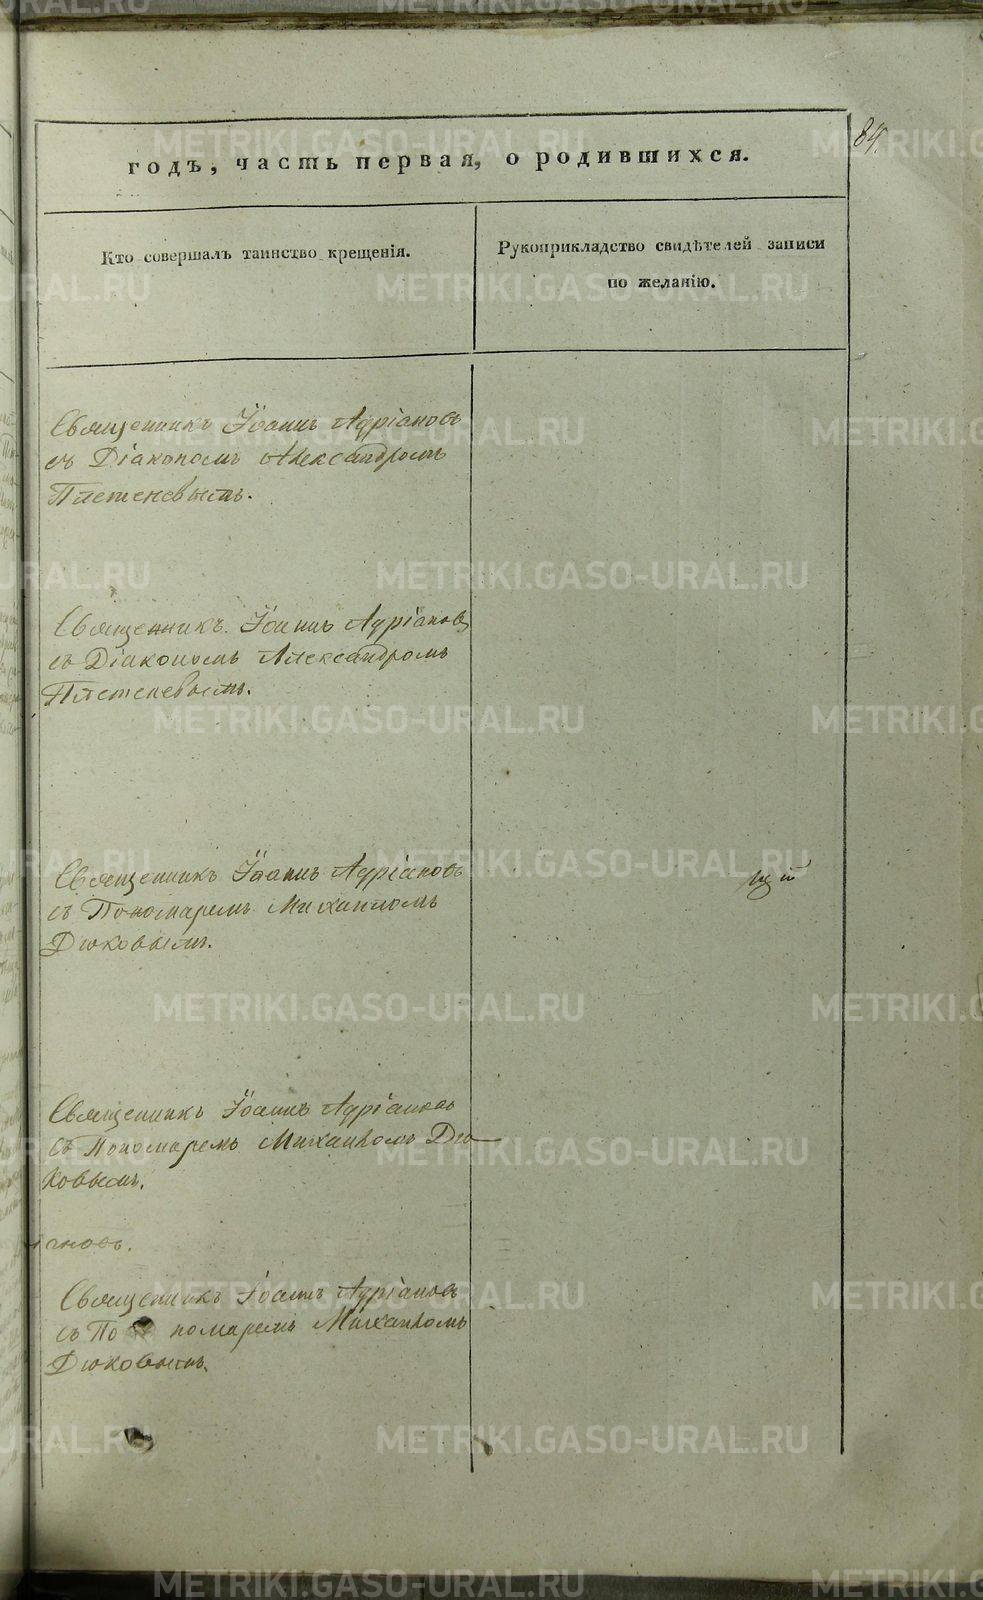 84.
годъ, часть первая, о родившихся.
Кто совершалъ таинство крещенія.
Рукоприкладство свидѣтелей записи
по желанію.
Священникъ Іоаннъ Адріановъ
съ Діакономъ Александромъ
Плетеневымъ.
Священникъ Іоаннъ Адріановъ
съ Діакономъ Александромъ
Плетеневымъ.
Священникъ Іоаннъ Адріановъ
съ Пономаремъ Михаиломъ
Дюковымъ.
щій
Священникъ Іоаннъ Адріановъ
съ Пономаремъ Михаиломъ Дю-
ковымъ.
іановъ.
Священникъ Іоаннъ Адріановъ
съ По номаремъ Михаиломъ
Дюковымъ.
METRIKI.GASO-URAL.RU